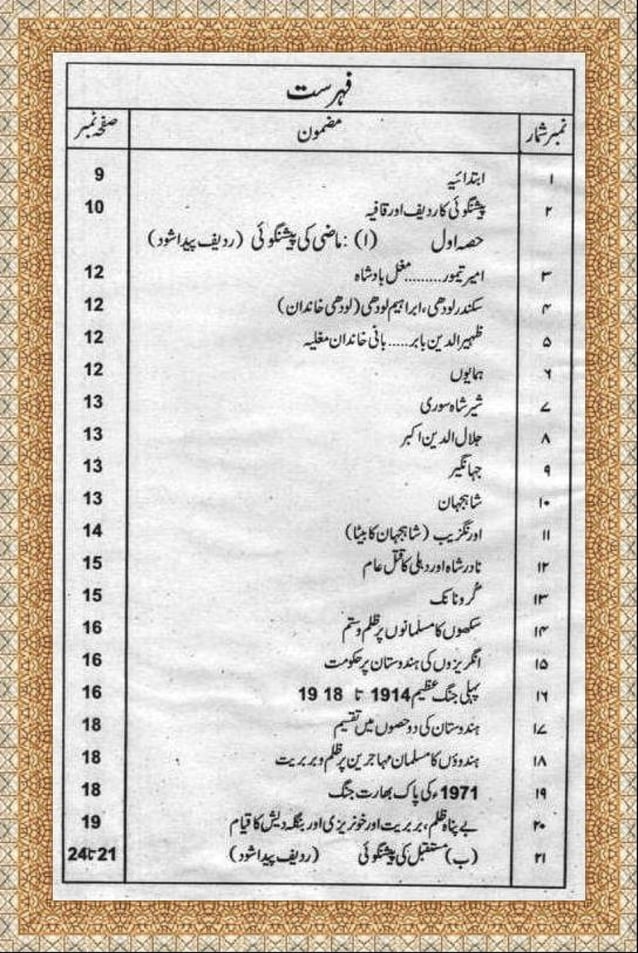 فہرست
نمبر شمار مضمون صفحہ نمبر
۱ ابتدائیہ 9
۲ پیشنگوئی کا ردیف اور قافیہ 10
حصہ اول (ا) : ماضی کی پیشنگوئی (ردیف پیدا شود)
۳ امیر تیمور.........مغل بادشاہ 12
۴ سکندر لودھی، ابراہیم لودھی (لودھی خاندان) 12
۵ ظہیر الدین بابر.....بانی خاندان مغلیہ 12
۶ ہمایوں 12
۷ شیر شاہ سوری 13
۸ جلال الدین اکبر 13
۹ جہانگیر 13
۱۰ شاہجہان 13
۱۱ اورنگزیب (شاہجہان کا بیٹا) 14
۱۲ نادر شاہ اور دہلی کا قتل عام 15
۱۳ گرونانک 15
۱۴ سکھوں کا مسلمانوں پر ظلم و ستم 16
۱۵ انگریزوں کی ہندوستان پر حکومت 16
۱۶ پہلی جنگ عظیم 1914 تا 18 19 16
۱۷ ہندوستان کی دو حصوں میں تقسیم 18
۱۸ ہندوؤں کا مسلمان مہاجرین پر ظلم و بربریت 18
۱۹ 1971ء کی پاک بھارت جنگ 18
۲۰ بے پناہ ظلم، بربریت اور خونریزی اور بنگلہ دیش کا قیام 19
۲۱ (ب) مستقبل کی پیشنگوئی (ردیف پیدا شود) 21 تا 24